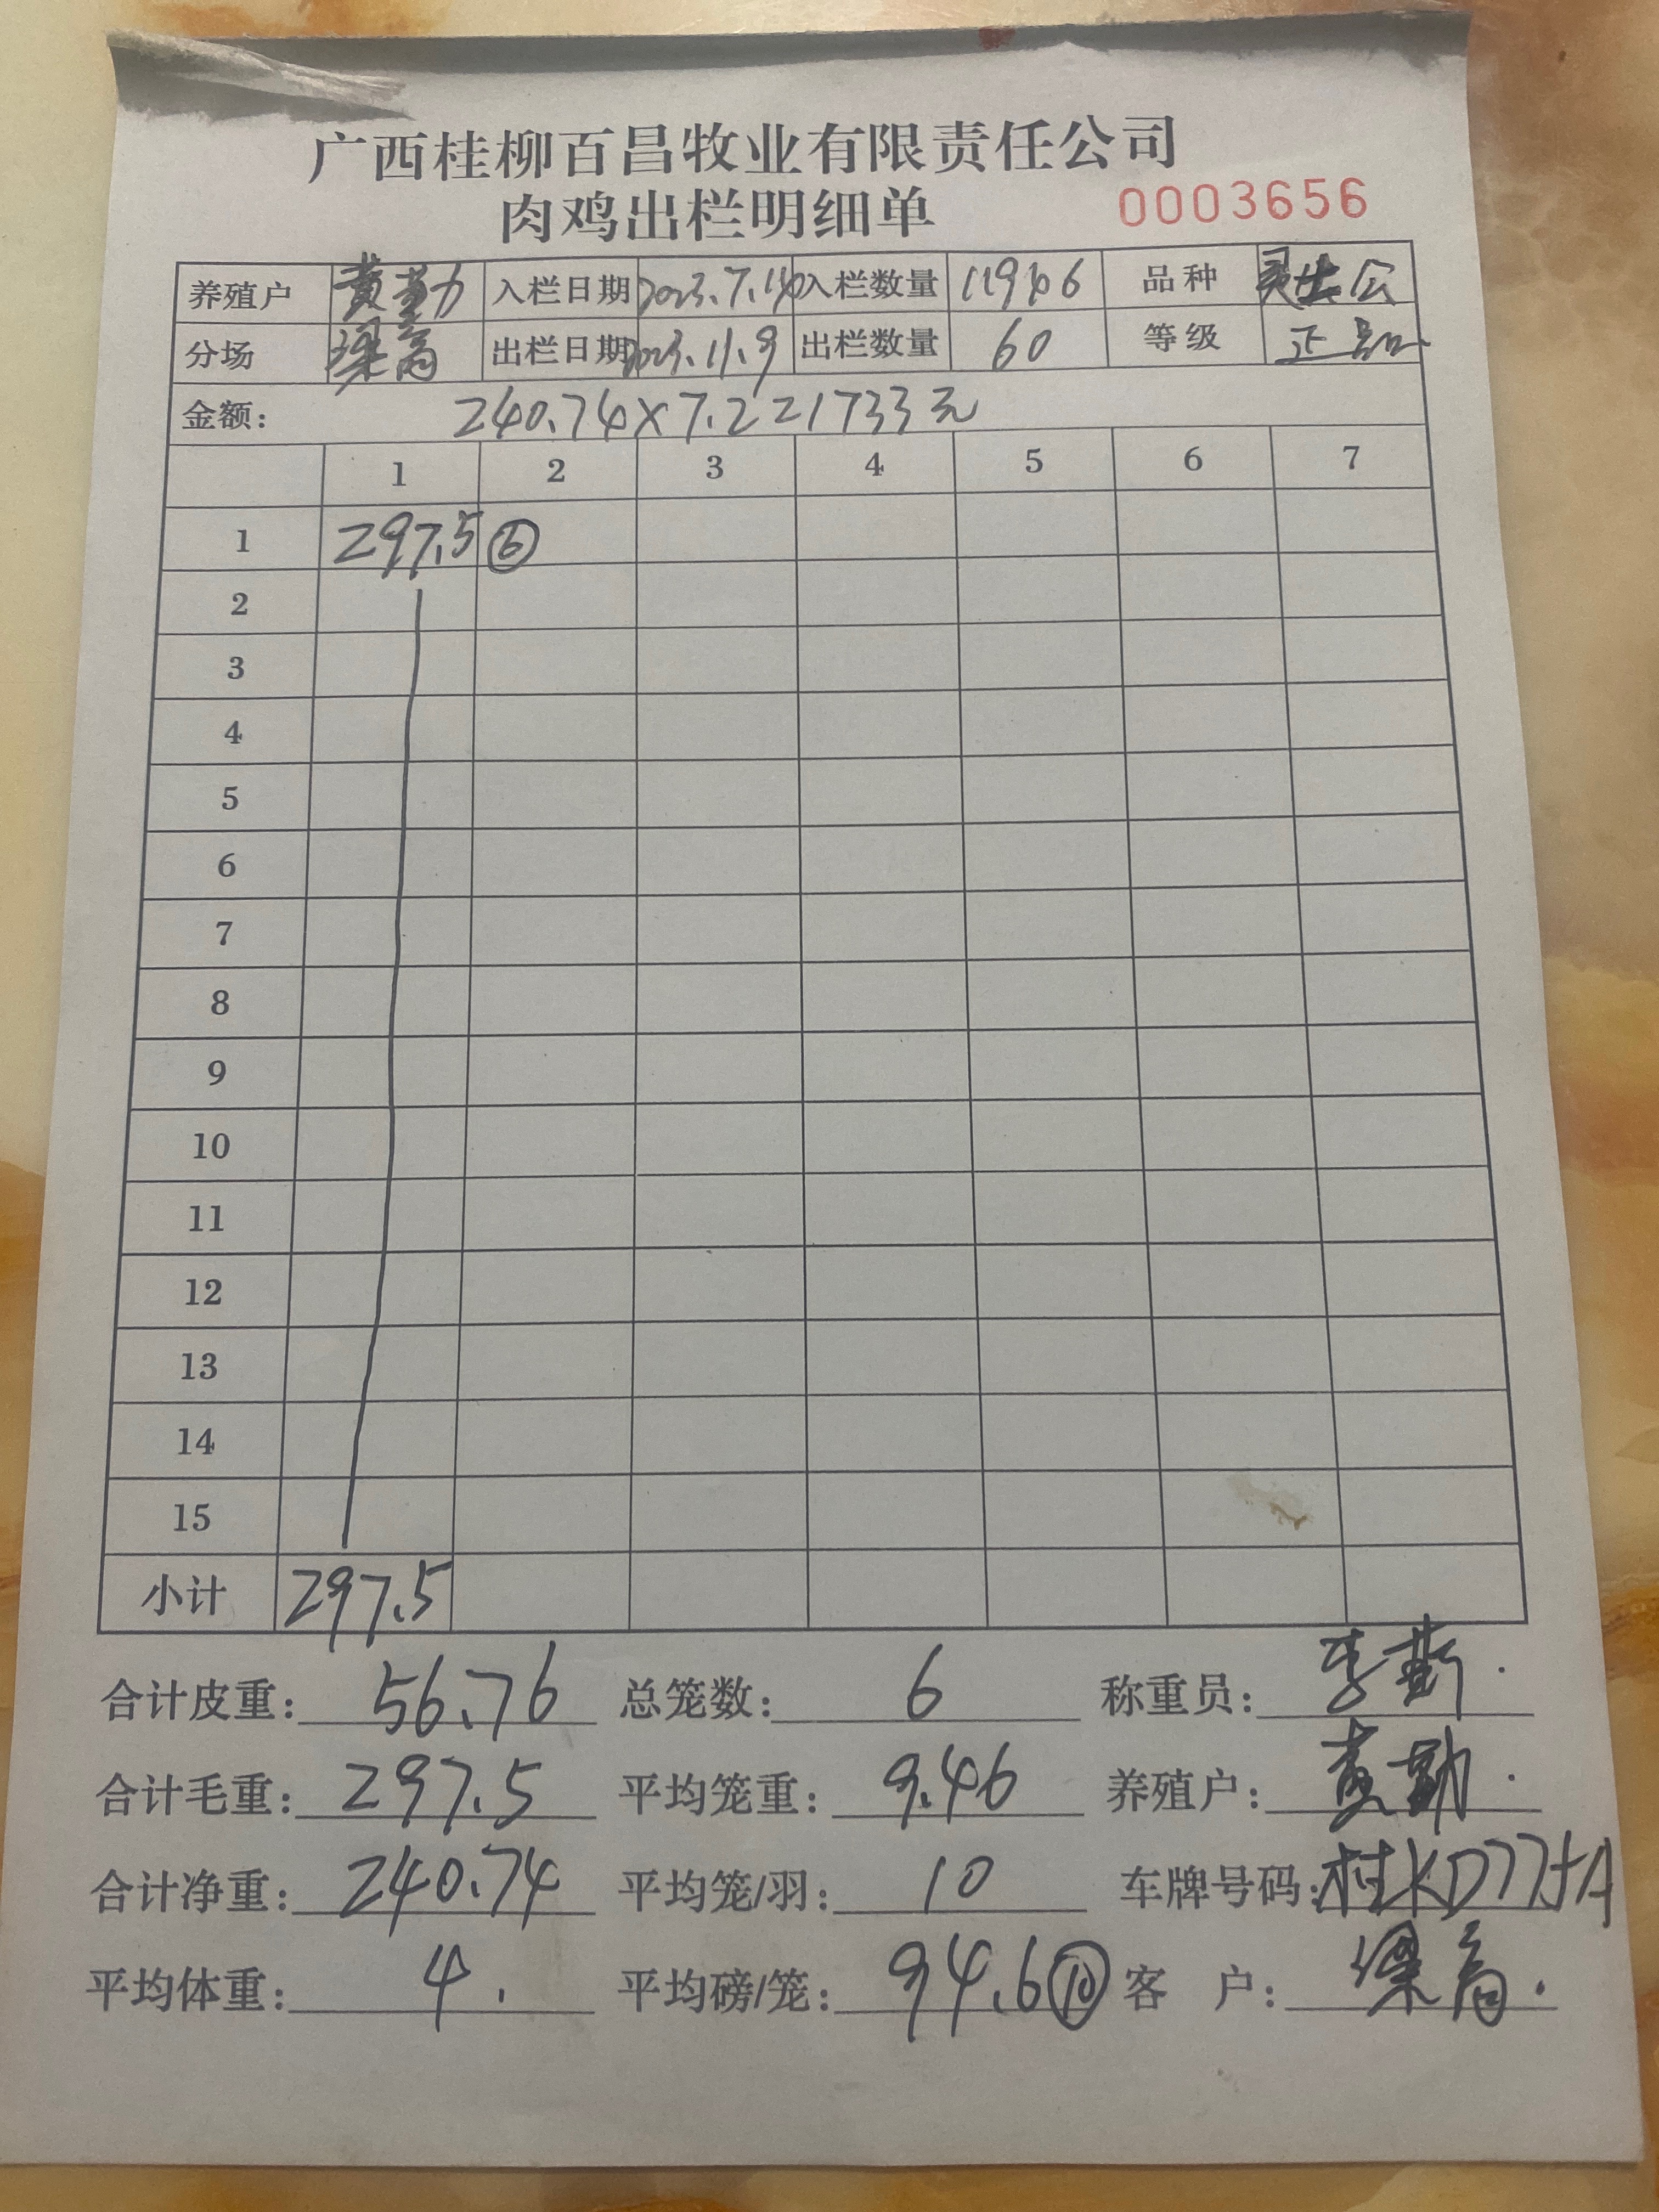 广西桂柳百昌牧业有限责任公司
肉鸡出栏明细单 0003656
养殖户 黄勤 入栏日期 2023.7.14 入栏数量 品种
分场 梁高 出栏日期 2023.11.9 出栏数量 60 等级 正品
金额: 240.74×7.2=1733元
1 2 3 4 5 6 7
1 297.5 ⑥
2
3
4
5
6
7
8
9
10
11
12
13
14
15
小计 297.5
合计皮重: 56.76 总笼数: 6 称重员: 李
合计毛重: 297.5 平均笼重: 9.46 养殖户: 黄勤
合计净重: 240.74 平均笼/羽: 10 车牌号码:
平均体重: 4. 平均磅/笼: 94.6⑩ 客 户: 梁高